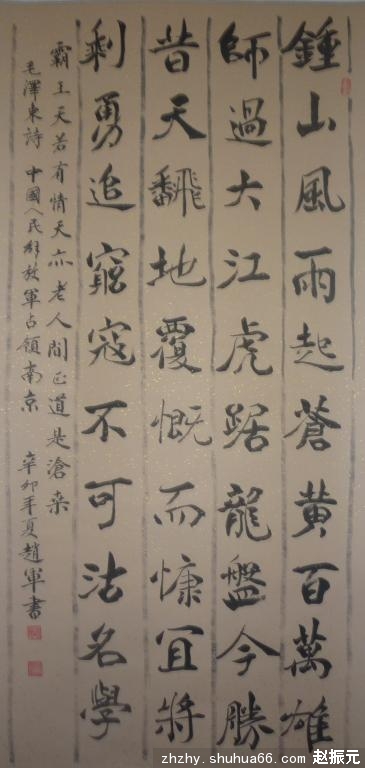 鍾山風雨起蒼黄百萬雄
師過大江虎踞龍盤今勝
昔天飜地覆慨而慷宜將
剩勇追窮寇不可沽名學
霸王天若有情天亦老人間正道是滄桒
毛澤東詩 中國人民解放軍占領南京 辛卯年夏趙軍書
zhzhy.shuhua66.com 赵振元